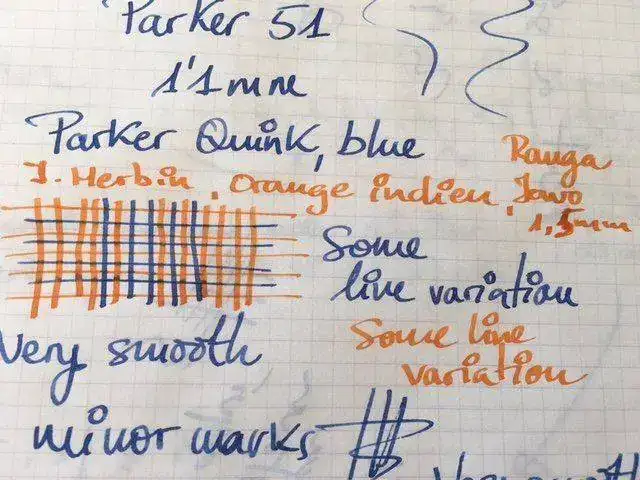 Parker 51
1'1 mm
Parker Quink, blue
Ranga
J. Herbin, Orange indien, Jowo
1,5mm
Some
line variation
Some line
variation
Very smooth
minor marks